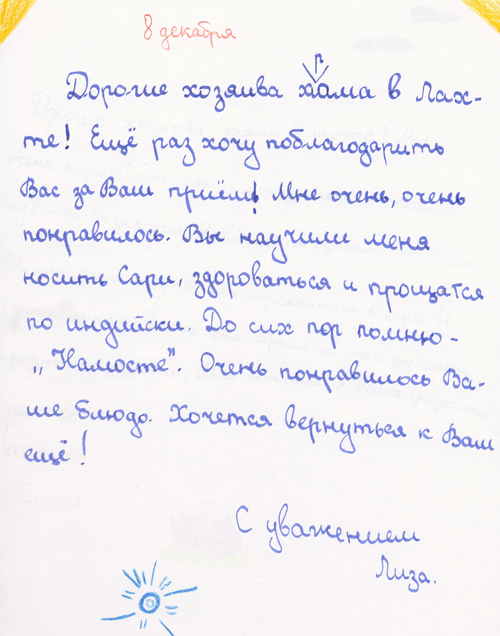 8 декабря
Дорогие хозяива храма в Лах-
те! Ещё раз хочу поблагодарить
Вас за Ваш приём! Мне очень, очень
понравилось. Вы научили меня
носить Сари, здороваться и прощатся
по индийски. До сих пор помню -
„Намосте". Очень понравилось Ва-
ше блюдо. Хочется вернуться к Вам
ещё!
С уважением
Лиза.